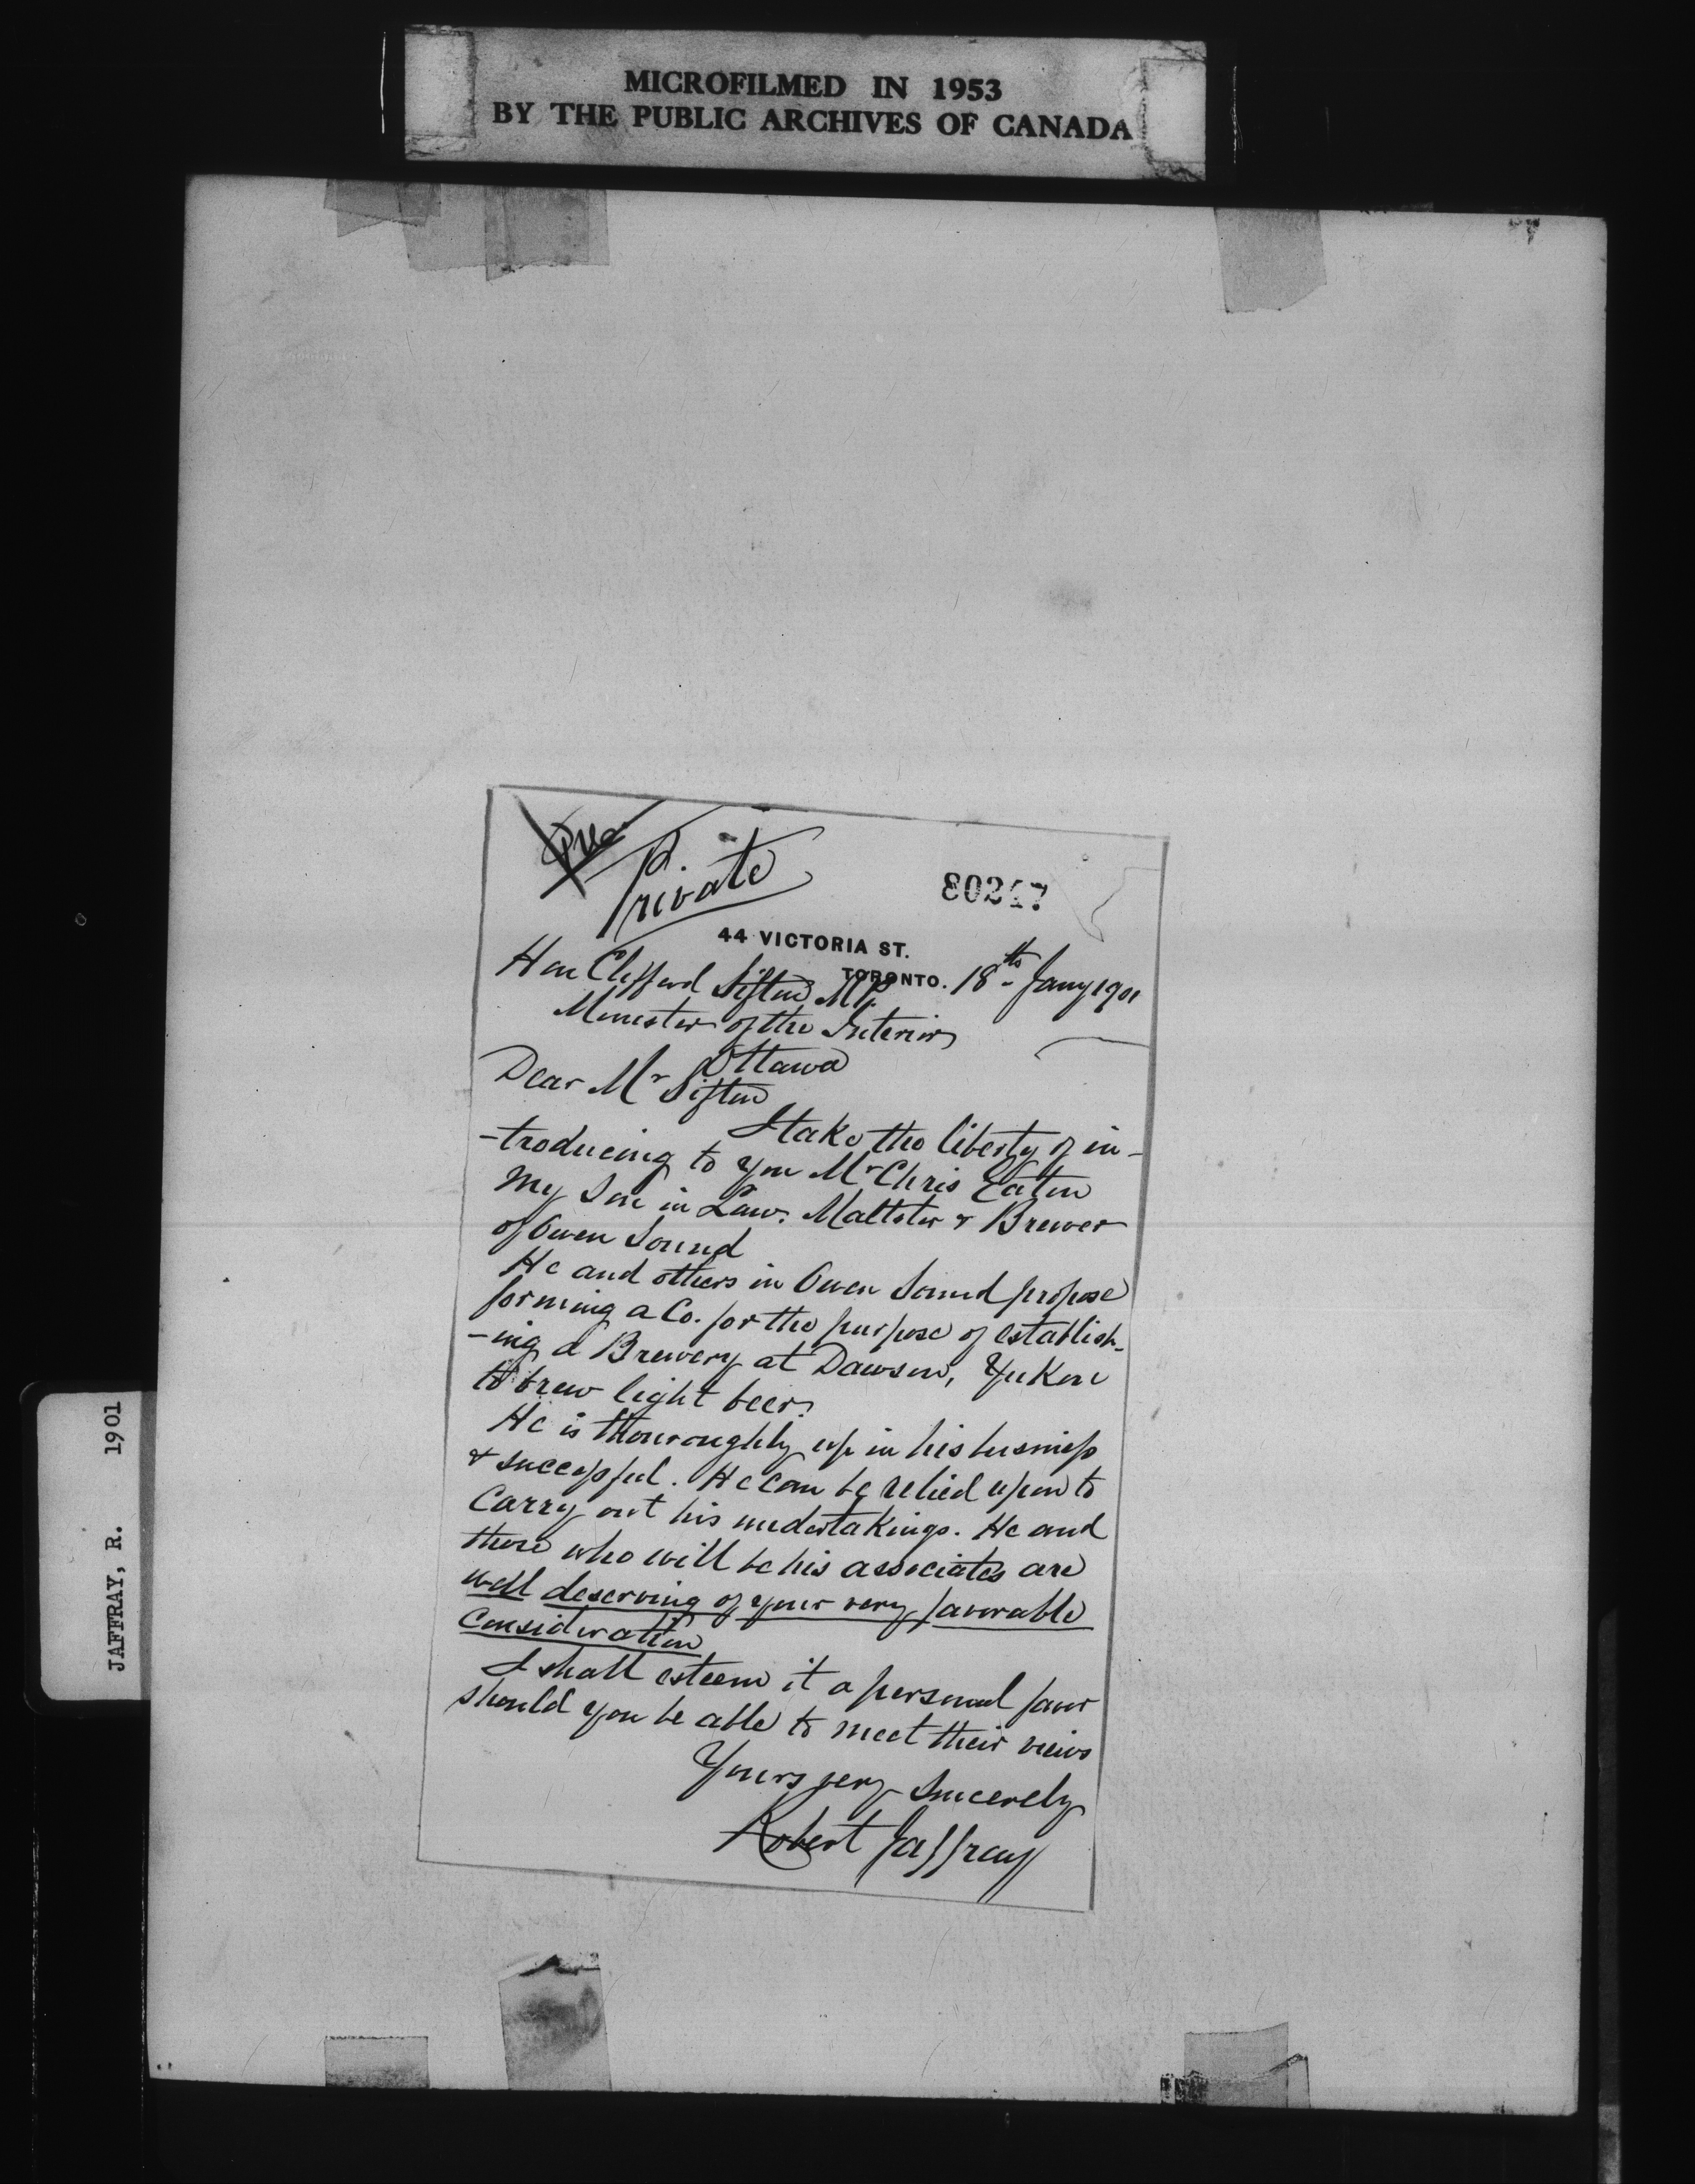 MICROFILMED IN 1953
BY THE PUBLIC ARCHIVES OF CANADA
JAFFRAY, R. 1901
Private
80247
44 VICTORIA ST.
TORONTO. 18th Jany 1901
Hon Clifford Sifton M.P.
Minister of the Interior
Ottawa
Dear Mr Sifton
I take the liberty of in-
-troducing to you Mr Chris Eaton
my Son in Law. Maltster & Brewer
of Owen Sound
He and others in Owen Sound propose
forming a Co. for the purpose of establish-
-ing a Brewery at Dawson, Yukon
to brew light beer.
He is thouroughly up in his business
& successful. He can be relied upon to
carry out his undertakings. He and
those who will be his associates are
well deserving of your very favorable
consideration
I shall esteem it a personal favor
should you be able to meet their views
Yours very Sincerely
Robert Jaffray